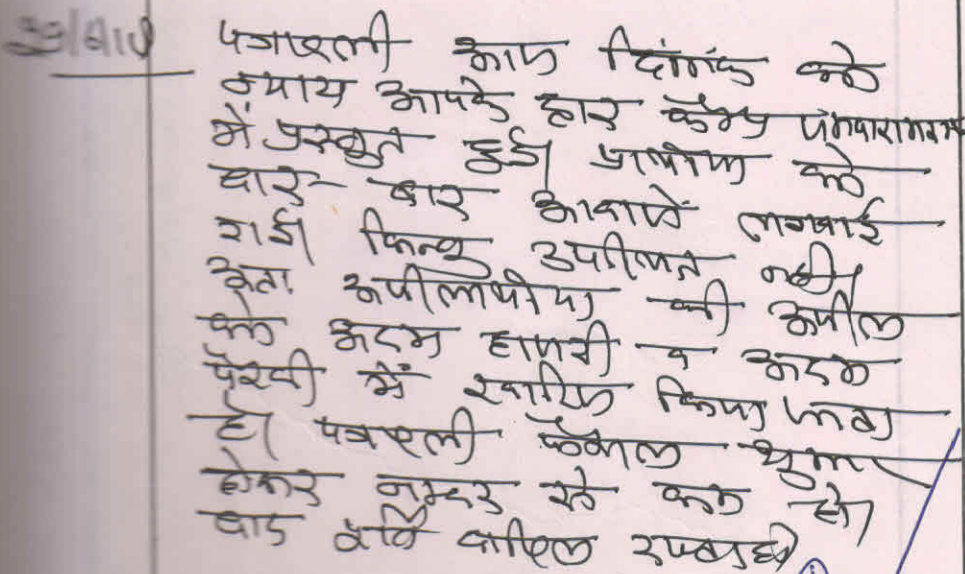 पत्रावली आज दिनांक को
न्याय आपके द्वार कैम्प
में प्रस्तुत हुई। प्रार्थीगण को
बार-बार आवाजें लगवाई
गई। किन्तु उपस्थित नहीं।
अतः अपीलार्थीगण की अपील
को अदम हाजरी व अदम
पैरवी में खारिज किया जाता
है। पत्रावली फैसल शुमार
होकर नम्बर से कम हो।
बाद दाखिल दफ्तर हो।